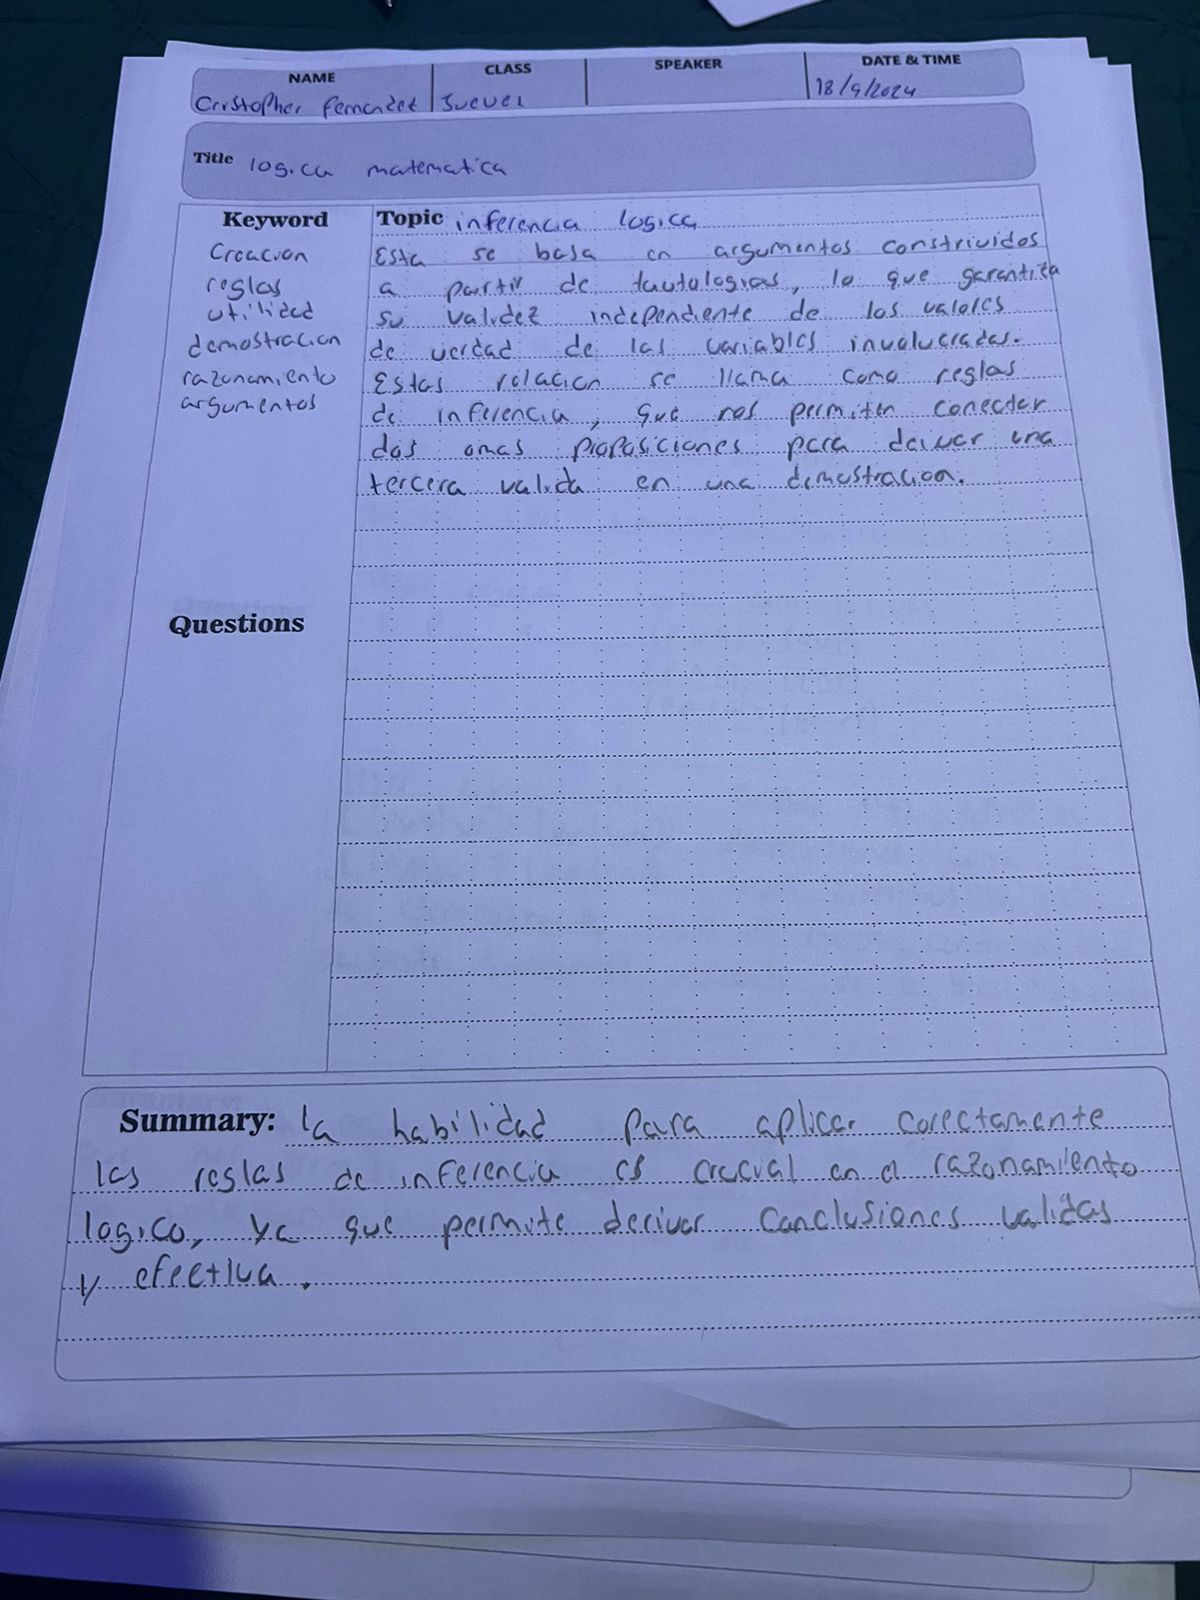 NAME CLASS SPEAKER DATE & TIME
Cristopher Fernandez Jueves 18/9/2024
Title logica matematica
Keyword
Creacion
reglas
utilidad
demostracion
razonamiento
argumentos
Topic inferencia logica
Esta se basa en argumentos construidos
a partir de tautologias, lo que garantiza
su validez independiente de los valores
de verdad de las variables involucradas.
Estas relacion se llama como reglas
de inferencia, que nos permiten conectar
dos omas proposiciones para derivar una
tercera valida en una demostracion.
Questions
Summary: la habilidad para aplicar corectamente
las reglas de inferencia es crucial en el razonamiento
logico, ya que permite derivar conclusiones validas
y efectiva.